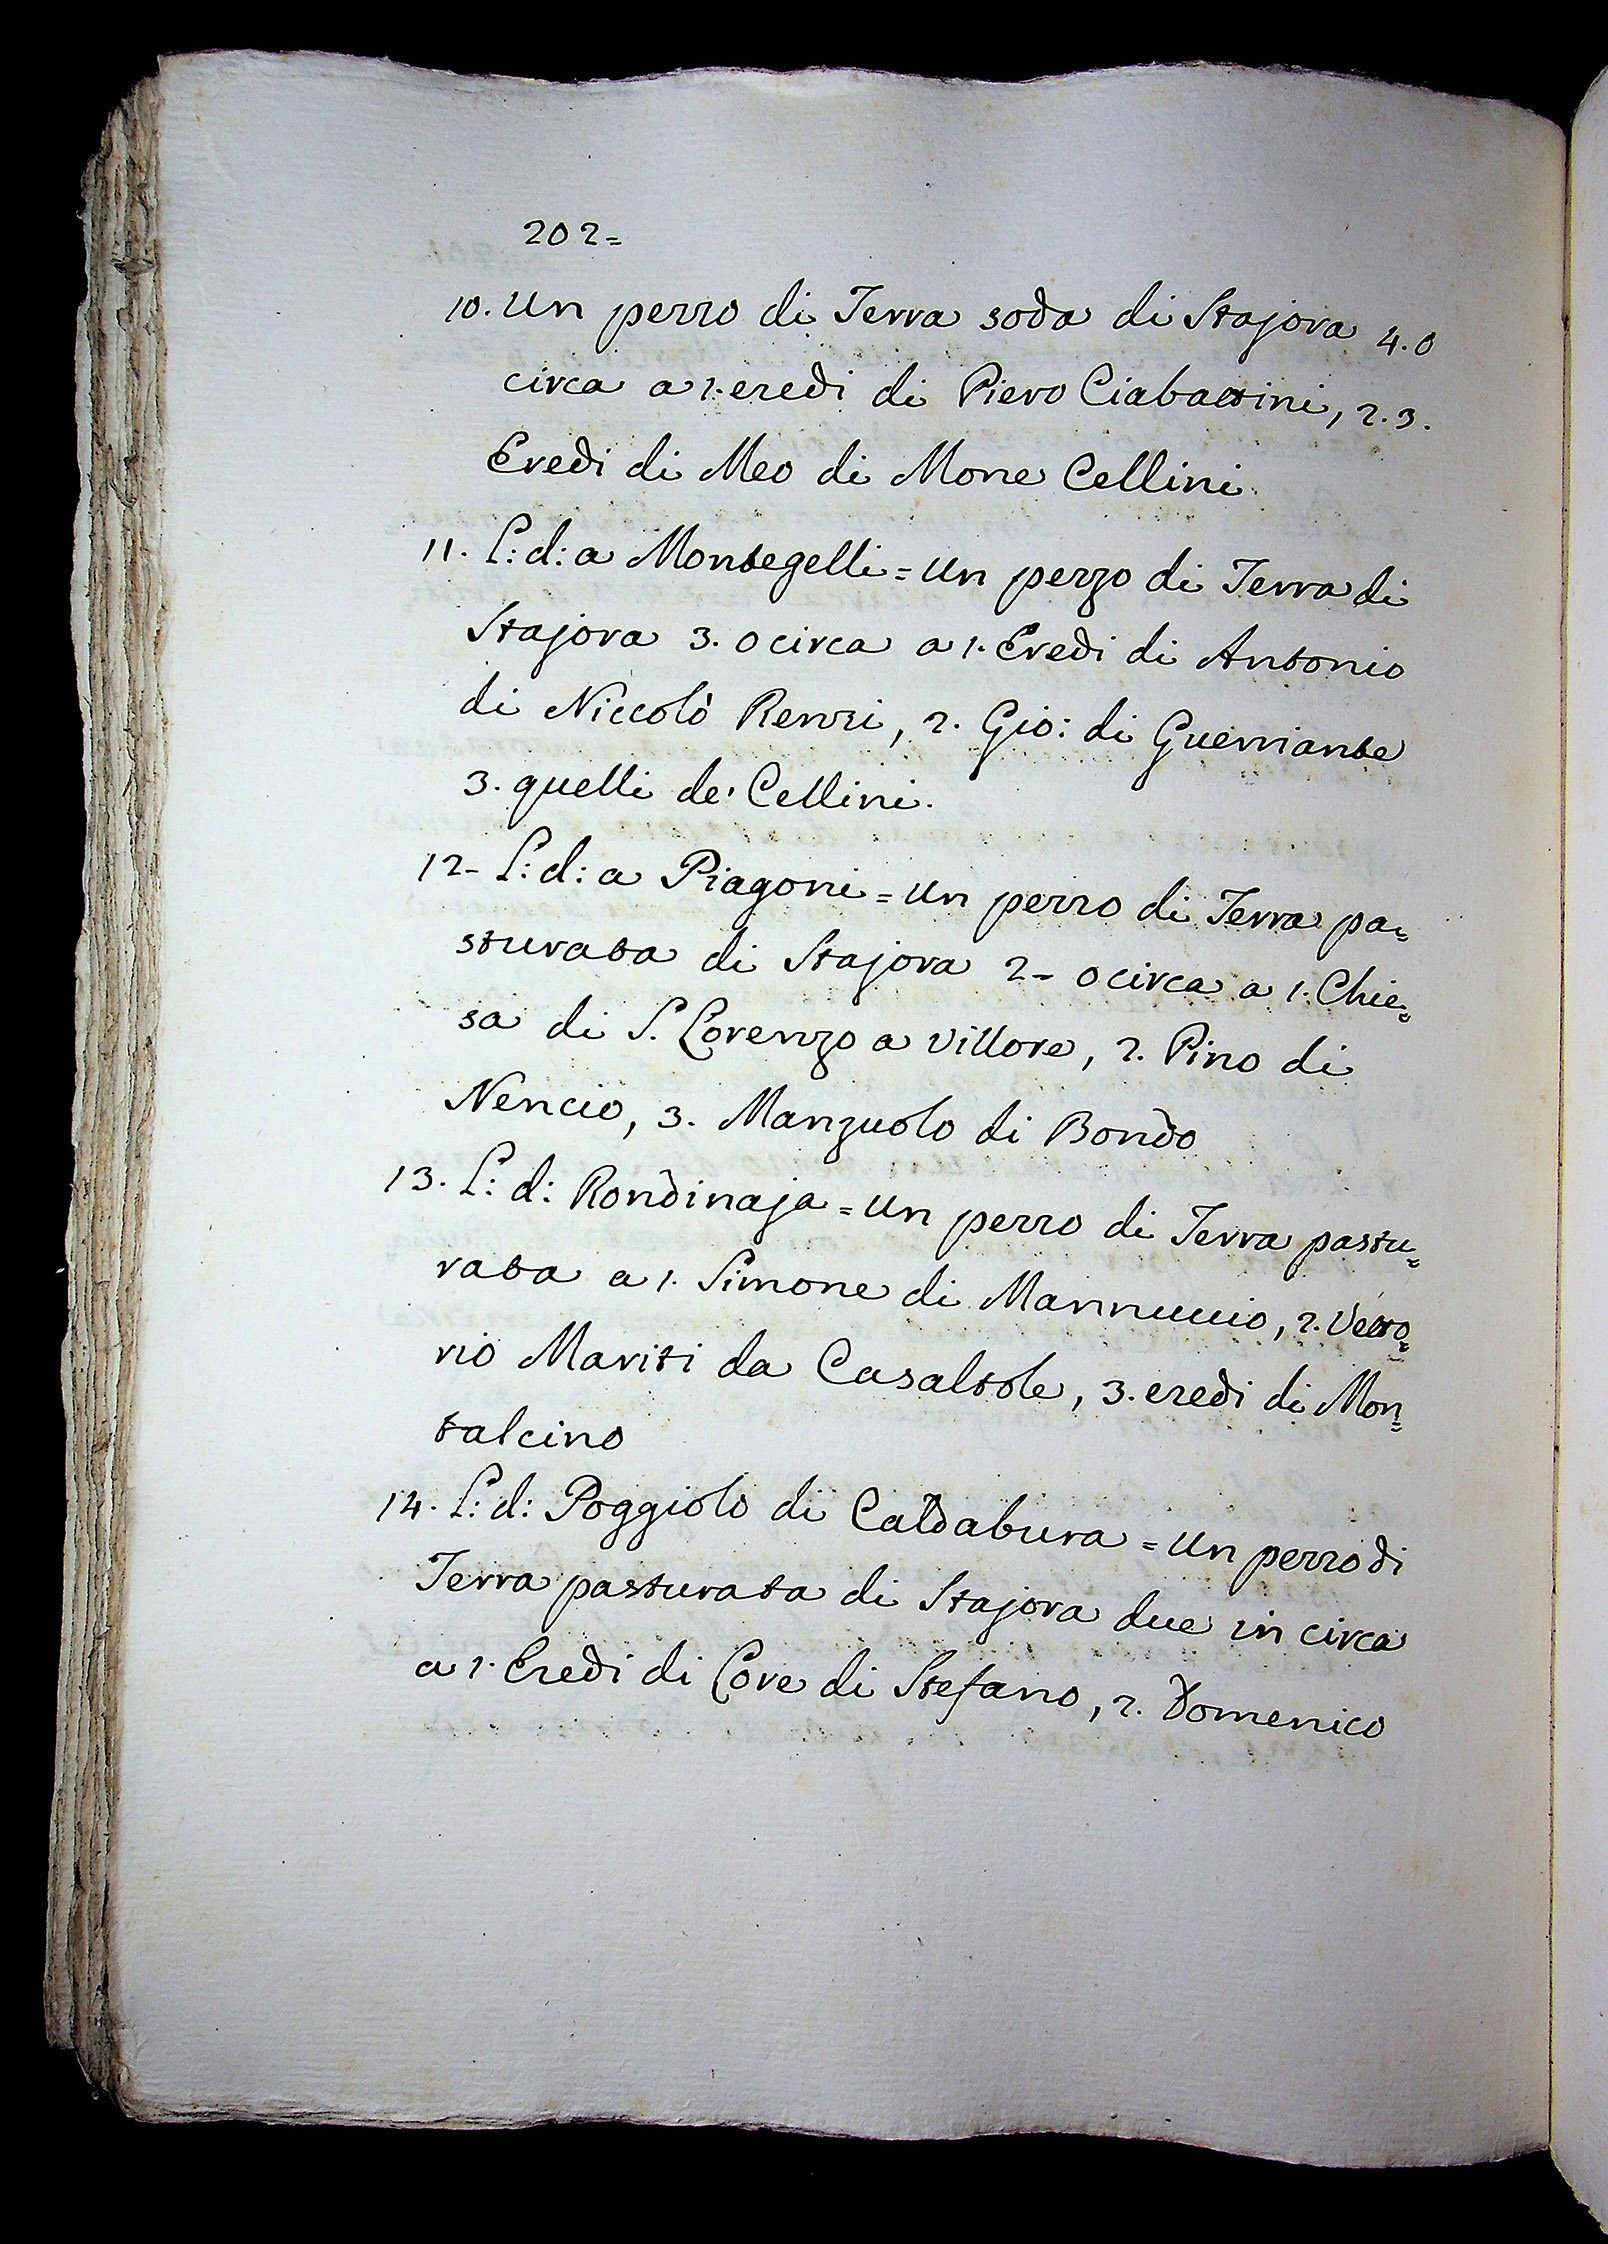 202=
10. Un pezzo di Terra soda di Stajora 4.0
circa a 1. eredi di Piero Ciabattini, 2.3.
Eredi di Meo di Mone Cellini
11. L: d: a Montegelli = Un pezzo di Terra di
Stajora 3. 0 circa a 1. Eredi di Antonio
di Niccolò Renzi, 2. Gio: di Guerriante
3. quelli de' Cellini.
12- L: d: a Piagoni = Un pezzo di Terra pa=
sturata di Stajora 2- 0 circa a 1. Chie=
sa di S. Lorenzo a Villore, 2. Pino di
Nencio, 3. Manzuolo di Bondo
13. L: d: Rondinaja = Un pezzo di Terra pastu=
rata a 1. Simone di Mannuccio, 2. Vetto=
rio Mariti da Casaltole, 3. eredi di Mon=
talcino
14. L: d: Poggiolo di Caldabura = Un pezzo di
Terra pasturata di Stajora due in circa
a 1. Eredi di Core di Stefano, 2. Domenico